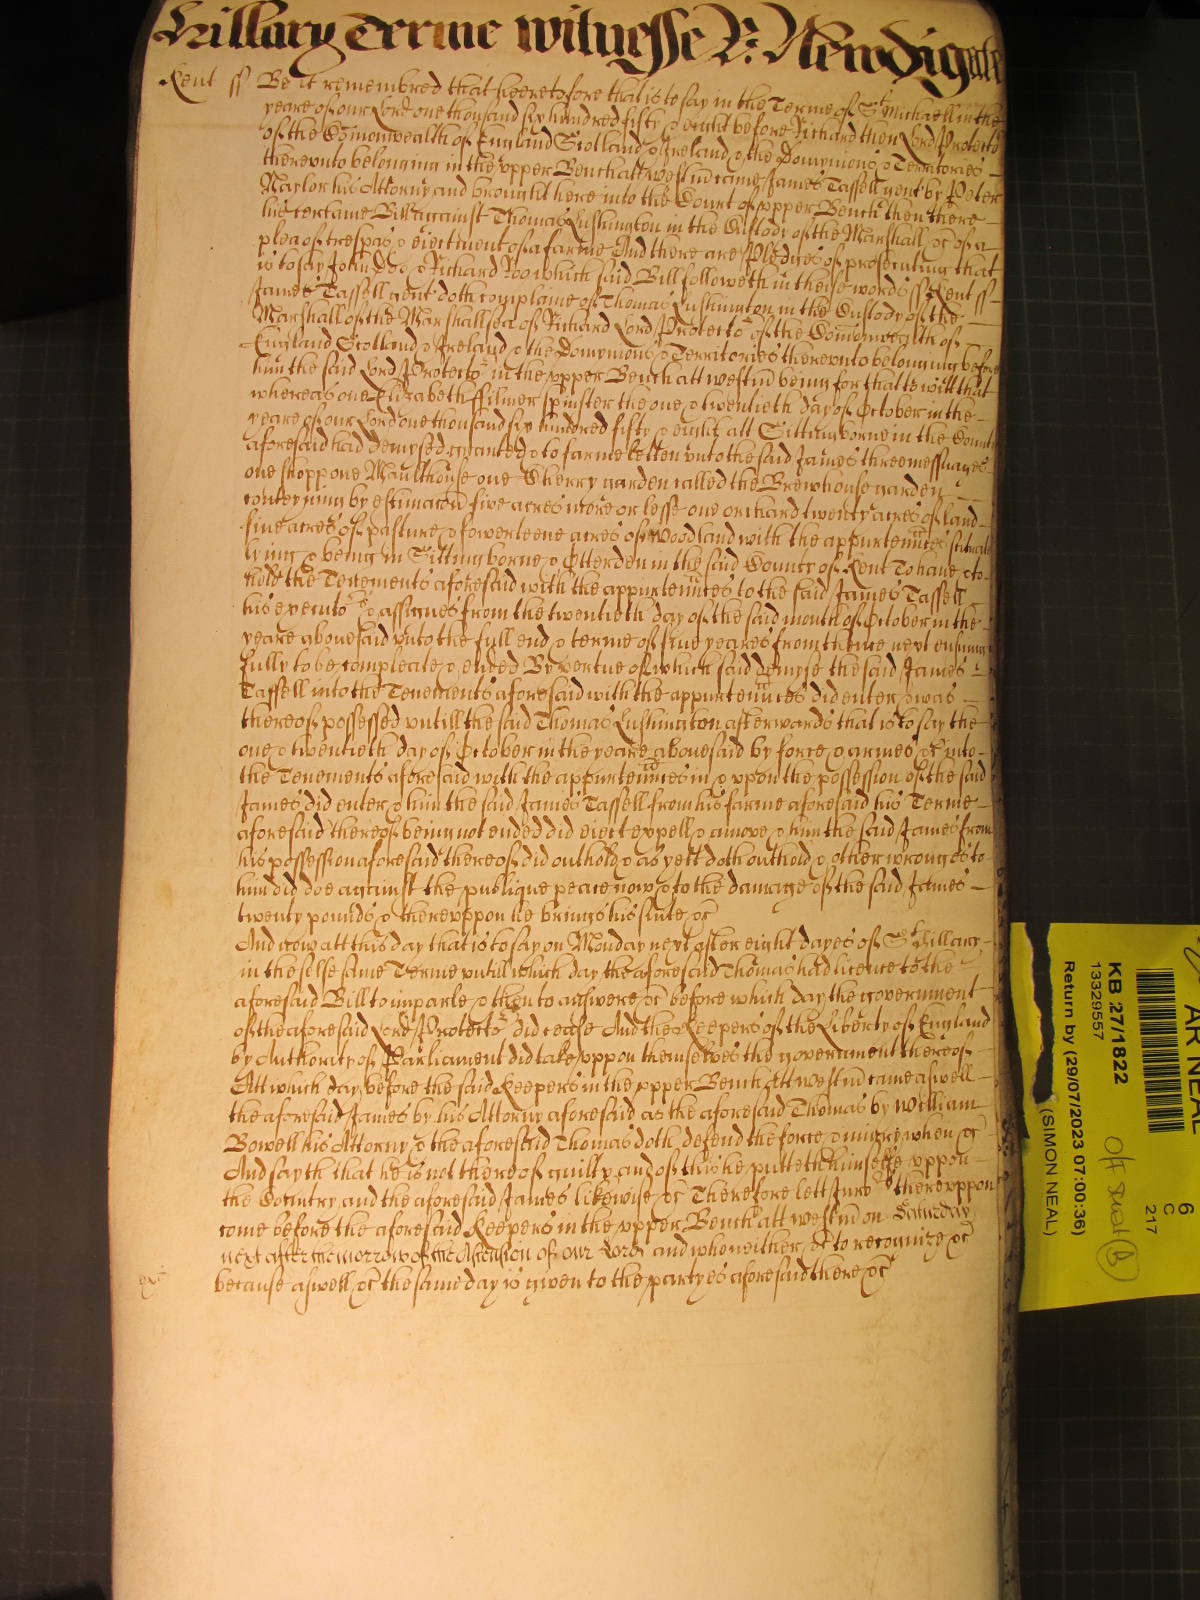 Hillary Terme witnesse R: Newdigate
Kent ss Be it remembred that heeretofore that is to say in the Terme of St Michaell in the
yeare of our Lord one thousand six hundred fifty & eight before Richard then Lord Protector
of the Comonwealth of England Scotland & Ireland & the Domynions & Territories
therevnto belonging in the vpper Bench att westm came James Tassell gent by Peter
Naylor his Attorny and brought here into the Court of vpper Bench then there
his certaine Bill against Thomas Lushington in the Custody of the Marshall &c of a
plea of trespas & eiectment of a farme And there are Pledges of prosecuting that
is to say John Doo & Richard Roo which said Bill followeth in theise words ss Kent ss
James Tassell gent doth complaine of Thomas Lushington in the Custody of the
Marshall of the Marshallsea of Richard Lord Protector of the Comonwealth of
England Scotland & Ireland & the Domynions & Territories therevnto belonging before
him the said Lord Protector in the vpper Bench att westm being for that to witt that
whereas one Elizabeth Filmer spinster the one & twentieth day of October in the
yeare of our Lord one thousand six hundred fifty & eight att Sittingborne in the County
aforesaid had demysed granted & to farme letten vnto the said James three messuages
one shopp one Maulthouse one Cherry garden called the Brewhouse garden
conteyning by estimacon five acres more or lesse one orchard twenty acres of land
five acres of pasture & fowerteene acres of woodland with the appurtennces scituate
lying & being in Sittingborne & Otterden in the said County of Kent To have & to
hold the Tenements aforesaid with the appurtennces to the said James Tassell
his executors & assignes from the twentieth day of the said month of October in the
yeare abovesaid vnto the full end & terme of five yeares from thence next ensuing
fully to be compleate & ended By vertue of which said demyse the said James
Tassell into the Tenements aforesaid with the appurtennces did enter & was
thereof possessed vntill the said Thomas Lushington afterwards that is to say the
one & twentieth day of October in the yeare abovesaid by force & armes &c into
the Tenements aforesaid with the appurtennces in & vppon the possession of the said
James did enter & him the said James Tassell from his farme aforesaid his Terme
aforesaid thereof being not ended did eiect expell & amove & him the said James from
his possession aforesaid thereof did outhold & as yett doth outhold & other wronges to
him did doe against the publique peace now & to the damage of the said James
twenty pounds & therevppon he brings his suite &c
And now att this day that is to say on Monday next after eight dayes of St Hillary
in the selfe same Terme vntill which day the aforesaid Thomas had licence to the
aforesaid Bill to imparle & then to answere &c before which day the government
of the aforesaid Lord Protector did cease And the Keepers of the Liberty of England
by Authority of Parliament did take vppon themselves the government thereof
Att which day before the said Keepers in the vpper Bench att westm came aswell
the aforesaid James by his Attorny aforesaid as the aforesaid Thomas by William
Bowell his Attorny & the aforesaid Thomas doth defend the force & iniury when &c
And sayth that he is not thereof guilty and of this he putteth himselfe vppon
the Country and the aforesaid James likewise &c Therefore lett Jurors therevppon
come before the aforesaid Keepers in the vpper Bench att westm on Saturday
next after the morrow of the Ascension of our Lord and who neither &c to recognize &c
because aswell &c the same day is given to the partyes aforesaid there &c
AR NEAL
KB 27/1822
13329557
Return by (29/07/2023 07:00:36)
(SIMON NEAL)
6
C
217